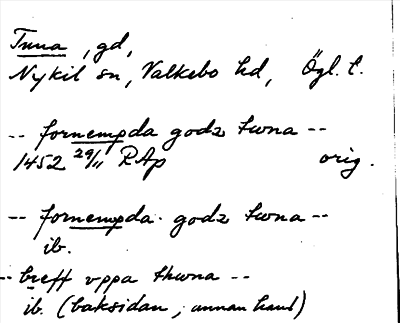 Tuna, gd,
Nykil sn, Valkebo hd, Ögl. l.
-- fornempda godz twna --
1452 29/11 RAp orig.
-- fornempda godz twna --
ib.
-- breff vppa thwna --
ib. (baksidan, annan hand)